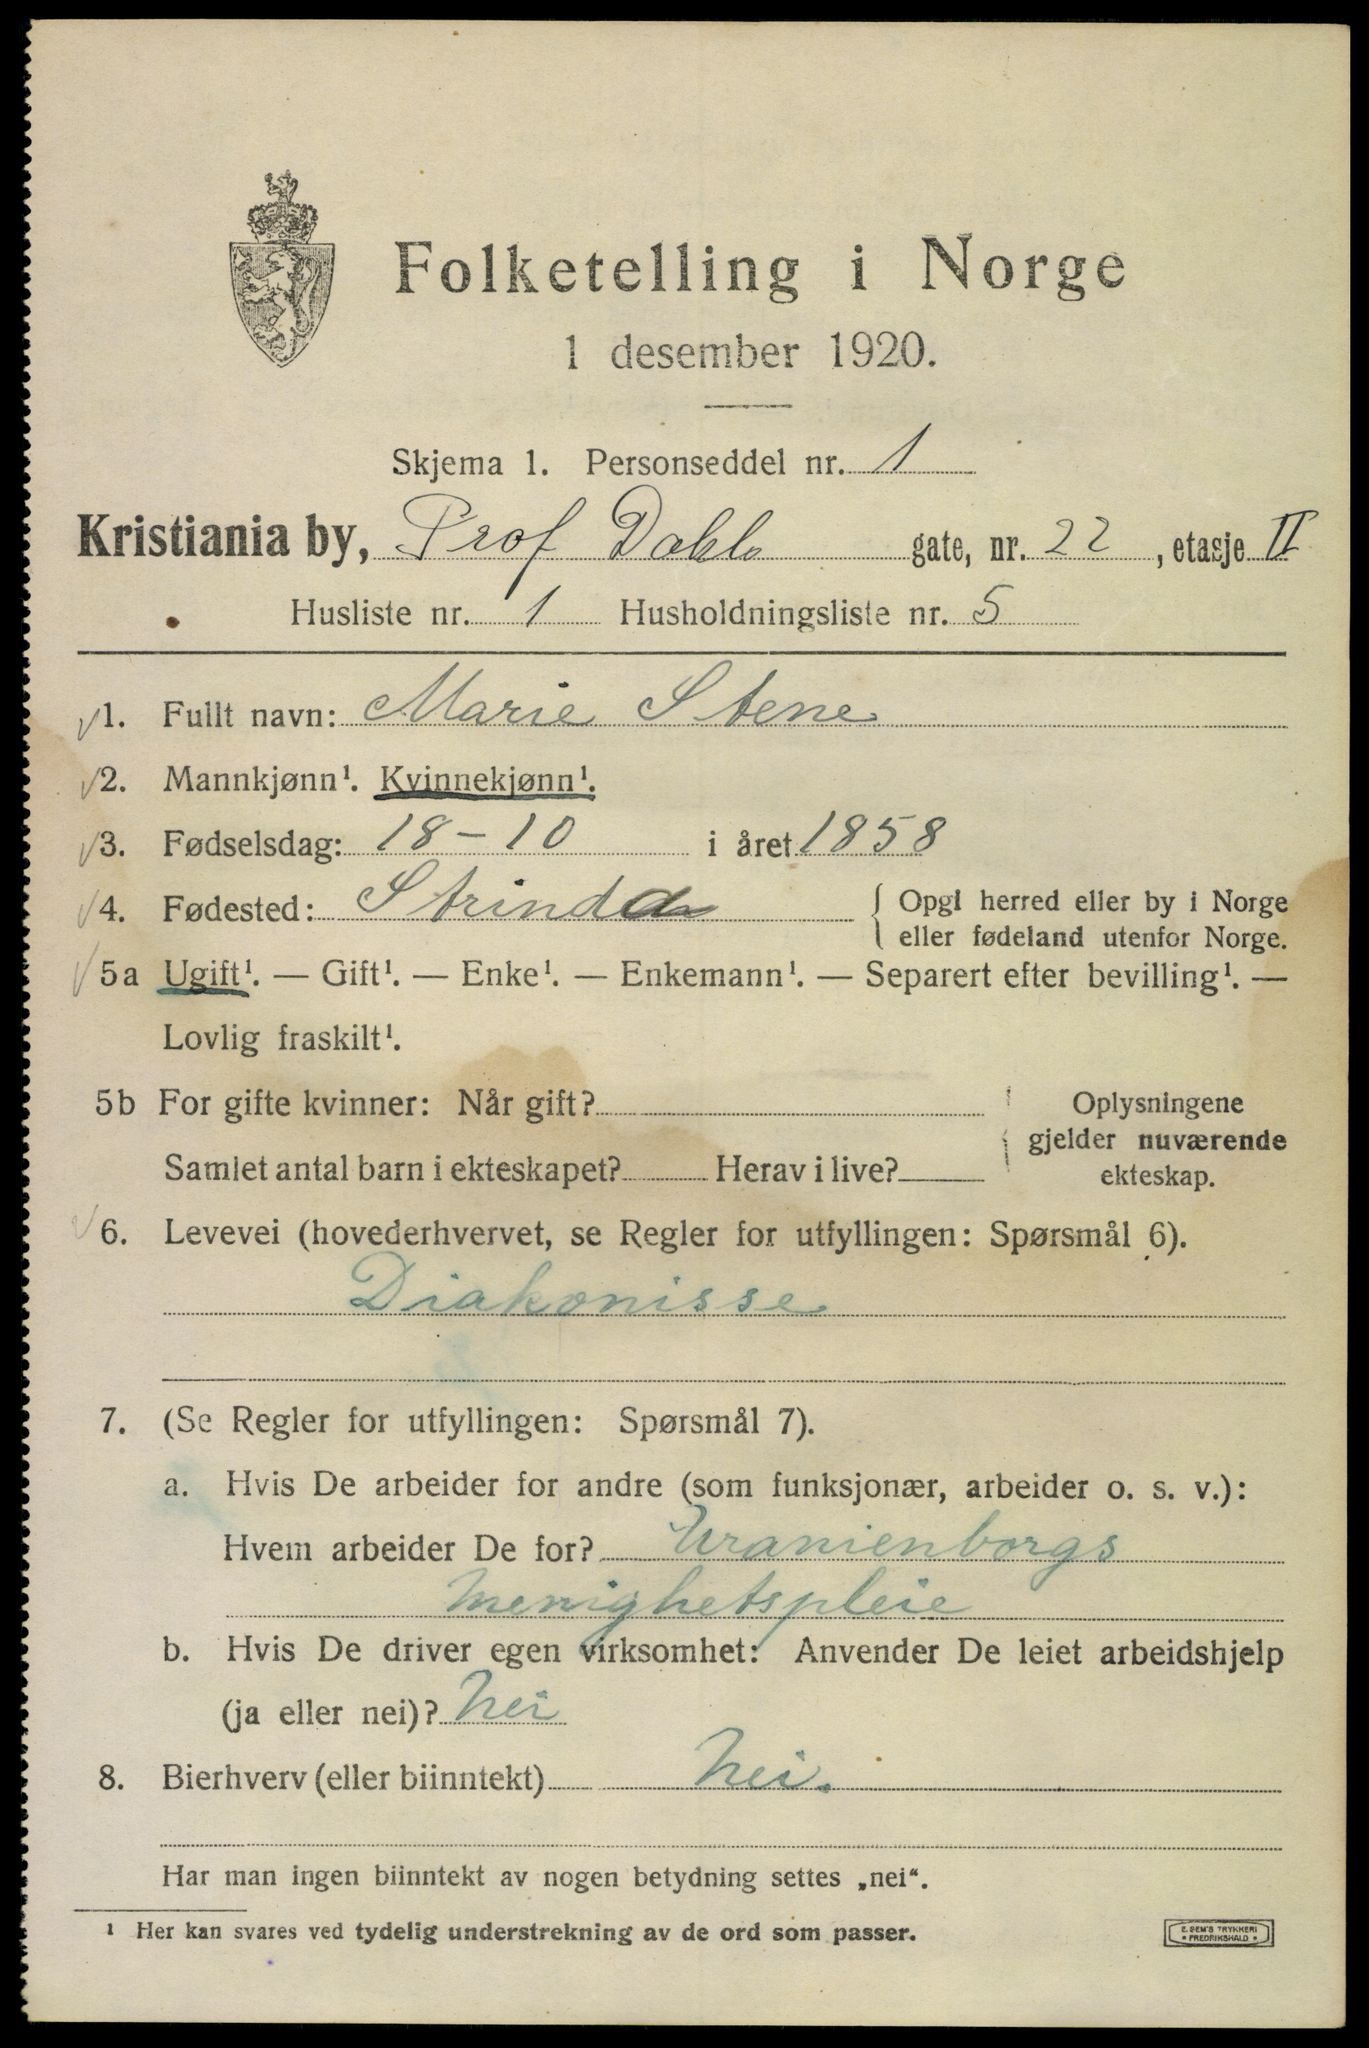 Folketelling i Norge
1 desember 1920.
Skjema 1. Personseddel nr. 1
Kristiania by, Prof Dahls gate, nr. 22, etasje II
Husliste nr. 1 Husholdningsliste nr. 5
1. Fullt navn: Marie Stene
2. Mannkjønn¹. Kvinnekjønn¹.
3. Fødselsdag: 18-10 i året 1858
4. Fødested: Strinda { Opgi herred eller by i Norge
eller fødeland utenfor Norge.
5a Ugift¹. — Gift¹. — Enke¹. — Enkemann¹. — Separert efter bevilling¹. —
Lovlig fraskilt¹.
5b For gifte kvinner: Når gift?
Samlet antal barn i ekteskapet? Herav i live?
Oplysningene
gjelder nuværende
ekteskap.
6. Levevei (hovederhvervet, se Regler for utfyllingen: Spørsmål 6).
Diakonisse
7. (Se Regler for utfyllingen: Spørsmål 7).
a. Hvis De arbeider for andre (som funksjonær, arbeider o. s. v.):
Hvem arbeider De for? Uranienborgs
menighetspleie
b. Hvis De driver egen virksomhet: Anvender De leiet arbeidshjelp
(ja eller nei)? Nei
8. Bierhverv (eller biinntekt) Nei.
Har man ingen biinntekt av nogen betydning settes „nei“.
¹ Her kan svares ved tydelig understrekning av de ord som passer.
E. SEM'S TRYKKERI
• FREDRIKSHALD •